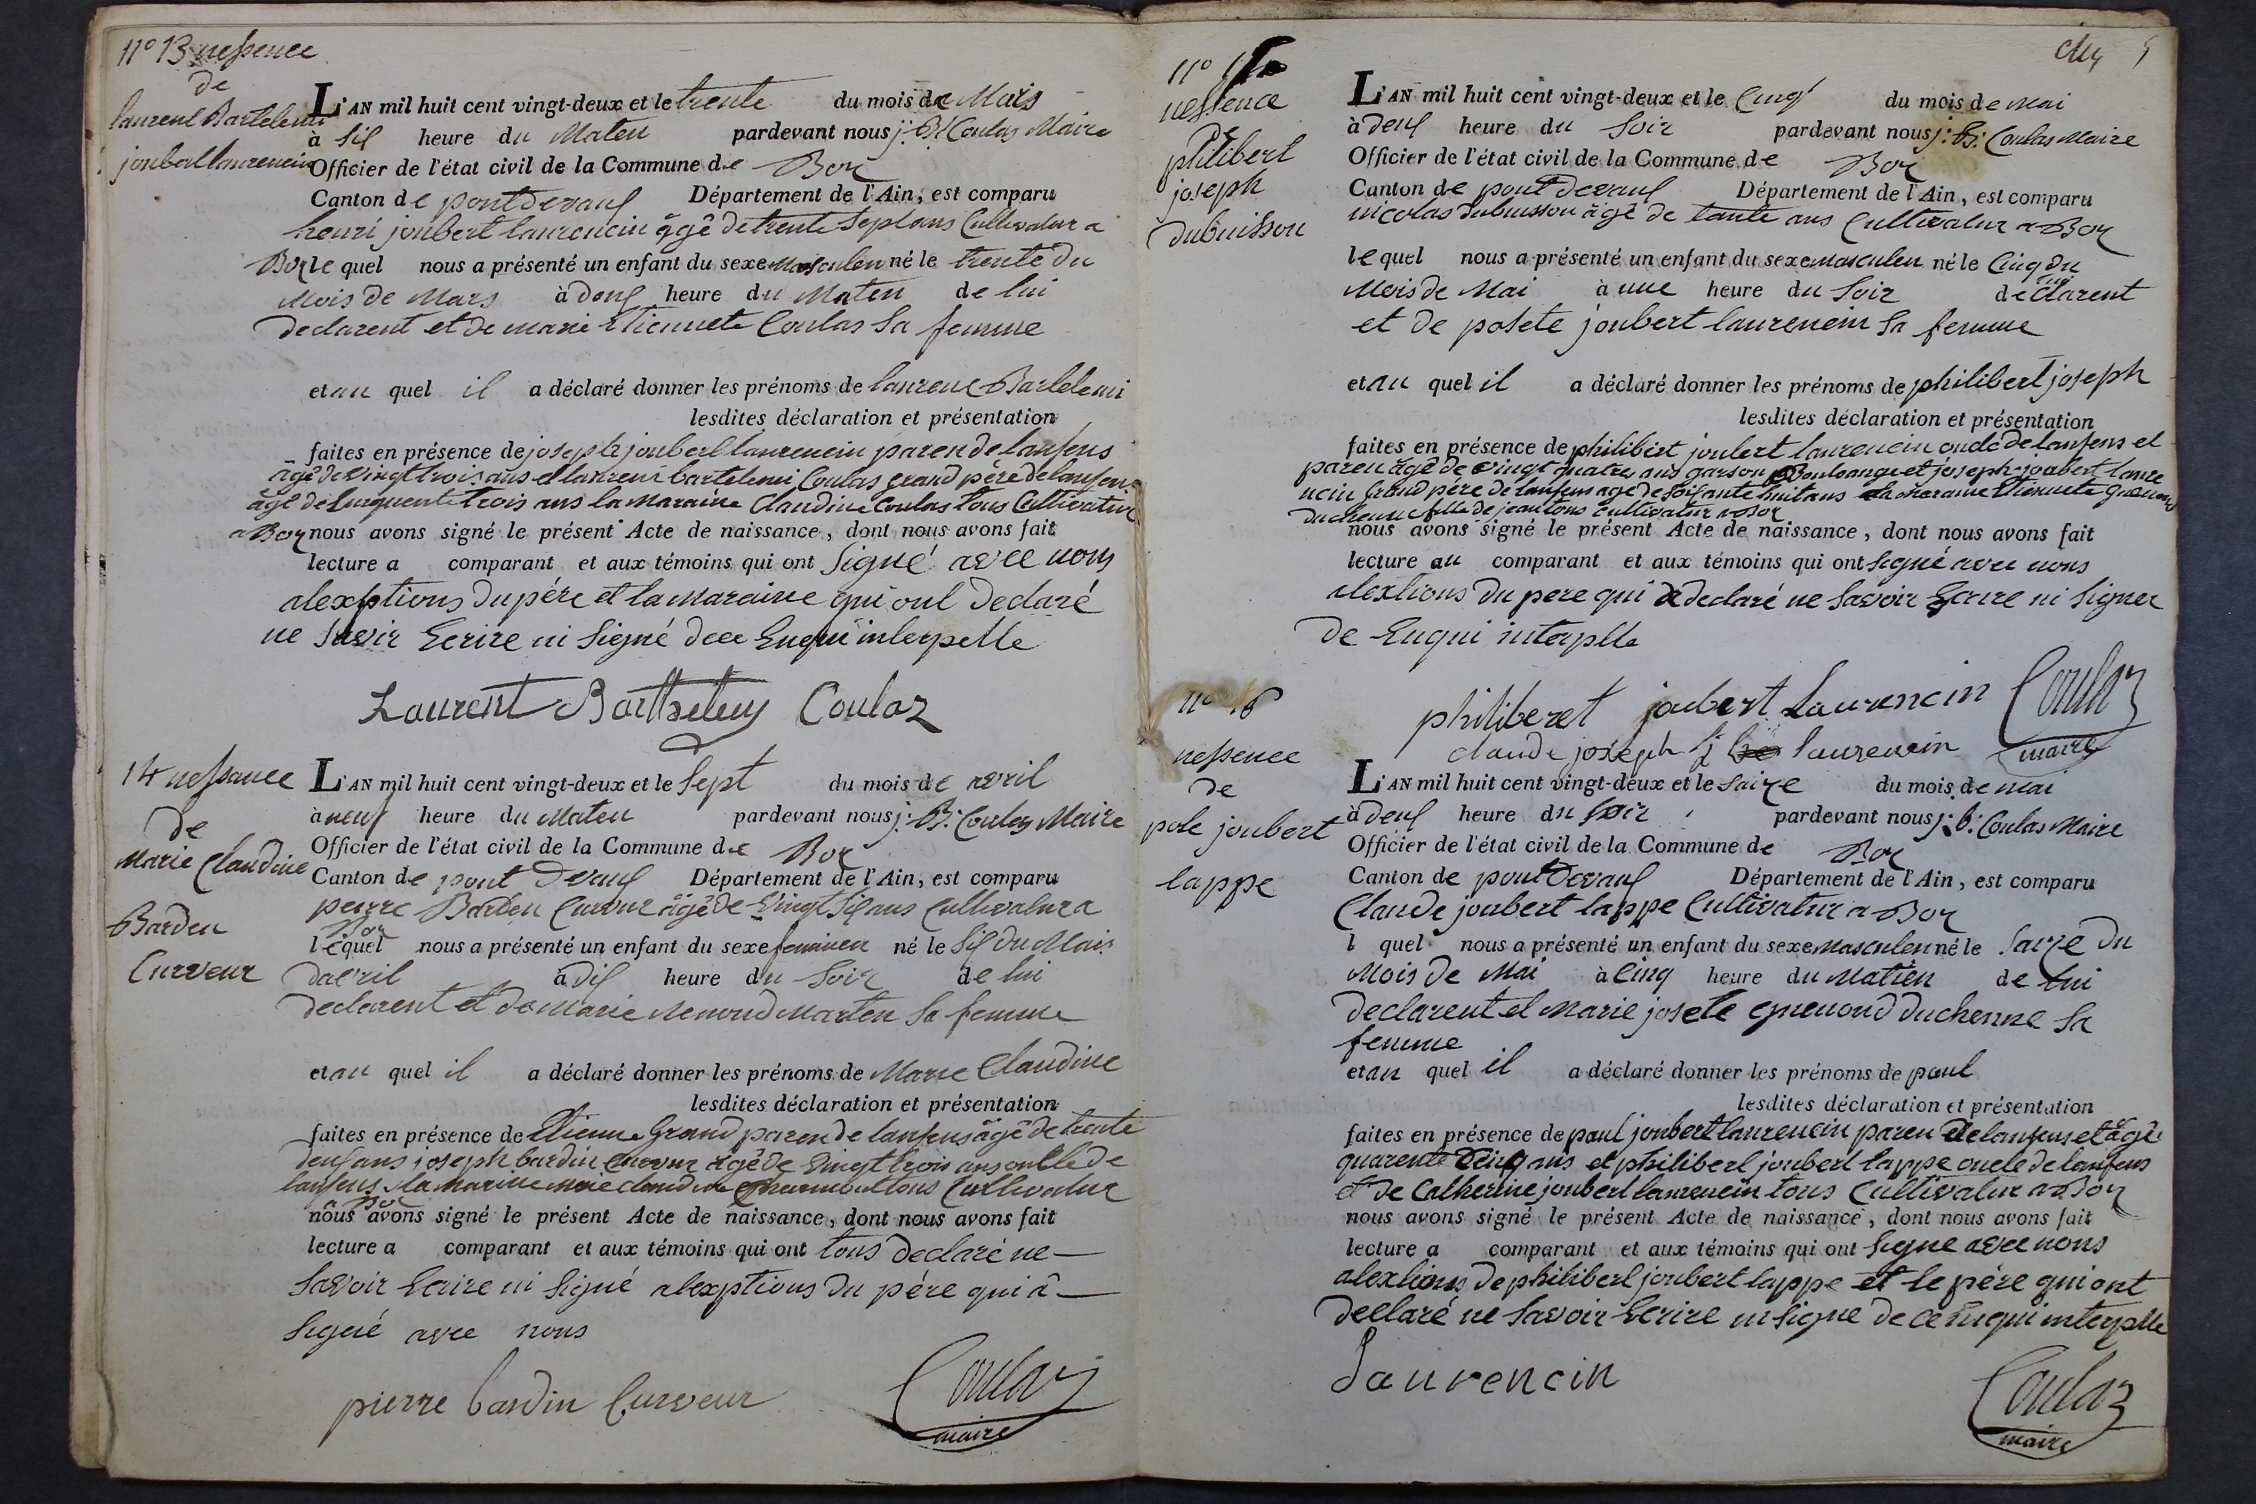 n° 13 nessence
de
laurent Bartelemi
joubert laurencin
L'AN mil huit cent vingt-deux et le trente du mois de Mars
à sis heure du Maten pardevant nous j: B: Coulas Maire
Officier de l'état civil de la Commune de Boz
Canton de pontdevaus Département de l'Ain, est comparu
henri joubert laurencin âgê de trente sept ans Cultivatur a
Boz le quel nous a présenté un enfant du sexe Masculen né le trente du
Mois de Mars à deus heure du Maten de lui
declarent et de marie Etiennete Coulas sa femme
et au quel il a déclaré donner les prénoms de laurent Bartelemi
lesdites déclaration et présentation
faites en présence de joseph joubert laurencin paren de lanfens
âgê de vingt trois ans et laurent bartelemi Coulas grand père de lanfens
âgê de Cinquente trois ans la Maraine Claudine Coulas tous Cultivatur
a Boz nous avons signé le présent Acte de naissance, dont nous avons fait
lecture a comparant et aux témoins qui ont signé avec nous
alexptions du pére et la Maraine qui ont declaré
ne savoir Ecrire ni signé de Enqui interpelle
Laurent Barthelemy Coulaz
14 nessance
de
Marie Claudine
Barden
Curveur
L'AN mil huit cent vingt-deux et le sept du mois de avril
à neuf heure du Maten pardevant nous j: B: Coulas Maire
Officier de l'état civil de la Commune de Boz
Canton de pont Devaus Département de l'Ain, est comparu
peirre Barden Curveur âgê de Vingt sis ans Cultivatur a
Boz
le quel nous a présenté un enfant du sexe feminen né le sis du Mais
davril à dis heure du Soir de lui
declarent et de Marie Renoud Marten sa femme
et au quel il a déclaré donner les prénoms de Marie Claudine
lesdites déclaration et présentation
faites en présence de Etienne Grand paren de lanfens âgê de trente
deus ans joseph bardin Curveur âgê de Vingt trois ans oncle de
lanfens la Maraine Marie claudine tous Cultivatur
a Boz
nous avons signé le présent Acte de naissance, dont nous avons fait
lecture a comparant et aux témoins qui ont tous declaré ne
savoir Ecrire ni signé alexptions du pére qui â
signé avec nous
pierre bardin Curveur Coulaz
maire
5
n° 15
nessence
philibert
joseph
dubuisson
L'AN mil huit cent vingt-deux et le Cinq du mois de mai
à deus heure du Soir pardevant nous j: B: Coulas Maire
Officier de l'état civil de la Commune de Boz
Canton de pont devaus Département de l'Ain, est comparu
nicolas dubuisson âgê de tante ans Cultivatur a Boz
le quel nous a présenté un enfant du sexe masculen né le Cinq du
Mois de Mai à une heure du Soir declarent
et de posete joubert laurencin sa femme
et au quel il a déclaré donner les prénoms de philibert joseph
lesdites déclaration et présentation
faites en présence de philibert joubert laurencin oncle de lanfens et
paren âgê de vingt quatre ans garson Boulange et joseph joubert laure
ncin Grand pere de lanfens age de soisante huit ans la maraine Etiennete Guenoud
duchenne fille de jean tous cultivatur a Boz
nous avons signé le présent Acte de naissance, dont nous avons fait
lecture au comparant et aux témoins qui ont signé avec nous
alextions du pere qui a declaré ne savoir Ecrire ni signer
de Enqui interplle
philiberet joubert Laurencin Coulaz
claude joseph j laurencin maire
n° 16
nessence
de
pole joubert
lappe
L'AN mil huit cent vingt-deux et le saize du mois de mai
à deus heure du soir pardevant nous j: b: Coulas Maire
Officier de l'état civil de la Commune de Boz
Canton de pont Devaus Département de l'Ain, est comparu
Claude joubert lappe Cultivatur a Boz
l quel nous a présenté un enfant du sexe Masculen né le saize du
Mois de Mai à Cinq heure du Matien de lui
declarent et Marie josete guenoud duchenne sa
femme
et au quel il a déclaré donner les prénoms de paul
lesdites déclaration et présentation
faites en présence de paul joubert laurencin paren de lanfens et âgê
quarente Cinq ans et philibert joubert lappe oncle de lanfens
et de Catherine joubert laurencin tous Cultivatur a Boz
nous avons signé le présent Acte de naissance, dont nous avons fait
lecture a comparant et aux témoins qui ont signe avec nous
alextions de philibert joubert lappe et le pére qui ont
declaré ne savoir Ecrire ni signe de ce Enqui interplle
Laurencin Coulaz
maire